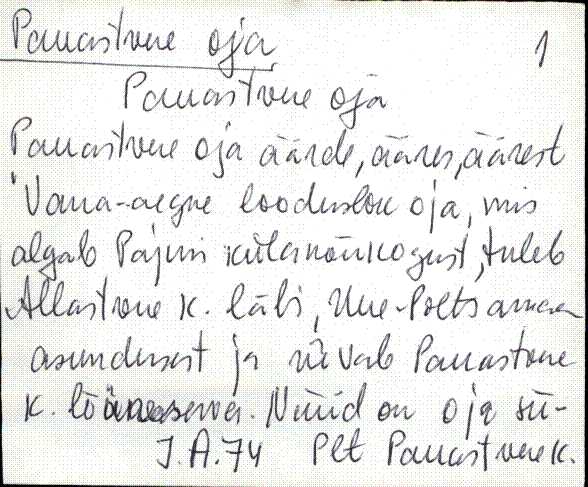 Pauastvere oja
1
Pauastvere oja
Pauastvere oja äärde, ääres, äärest
Vana-aegne looduslik oja, mis
algab Pajusi külanõukogust, tuleb
Allastvere k. läbi, Uue-Põltsamaa
asundusest ja riivab Pauastvere
k. lääneserva. Nüüd on oja sü-
J.A.74 Plt Pauastvere k.